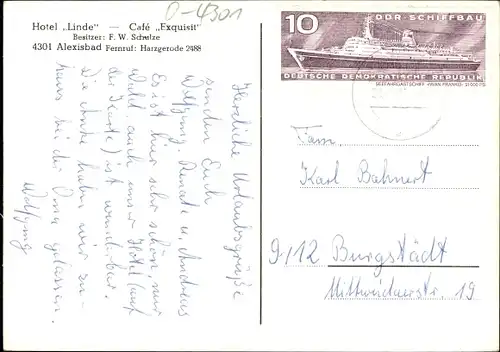 O-4301
Hotel „Linde" — Café „Exquisit"
Besitzer: F. W. Schulze
4301 Alexisbad Fernruf: Harzgerode 2488
10 DDR-SCHIFFBAU
DEUTSCHE DEMOKRATISCHE REPUBLIK
Herzliche Urlaubsgrüße
senden Euch
Wolfgang, Renate u. Andreas
Es ist hier sehr schön, nur
Wald, auch unser Hotel (auf
der Karte) ist wunderbar.
Die haben wir zu-
haus bei der Oma gelassen.
Wolfgang
Fam.
Karl Bahnert
9112 Burgstädt
Mittweidaerstr. 19